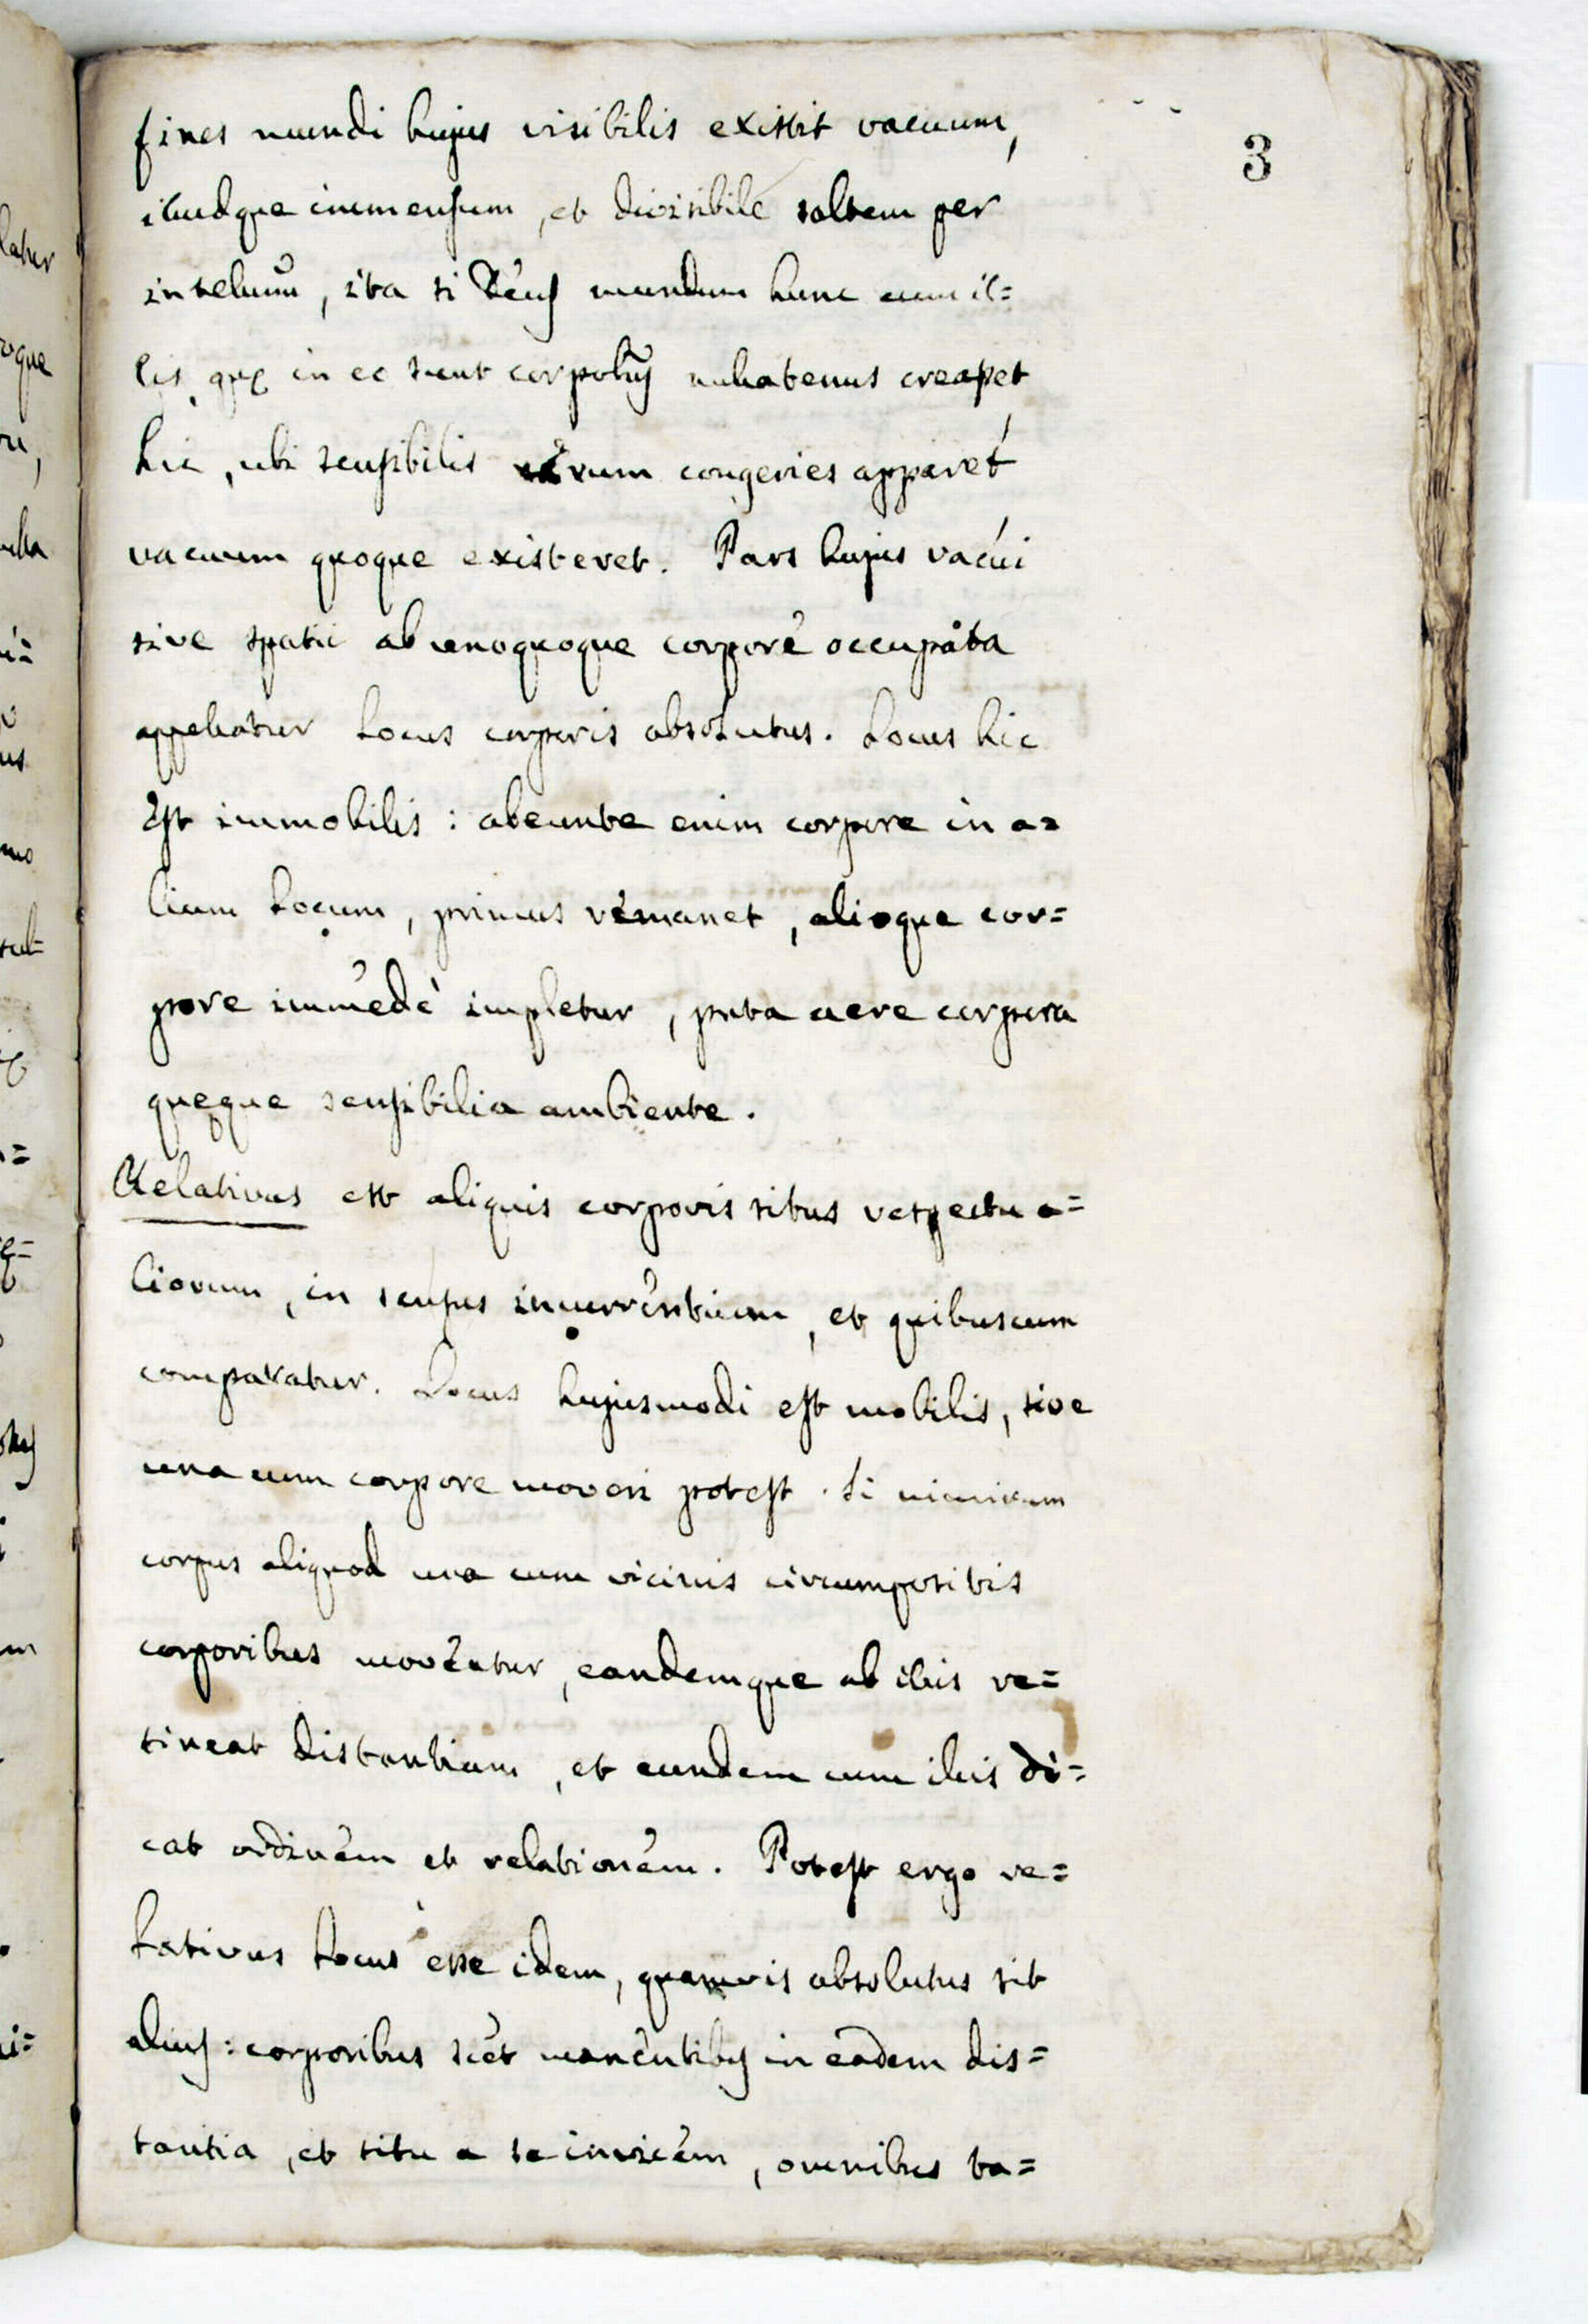 3
fines mundi hujus visibilis existit vacuum,
illudque immensum, et divisibile saltem per
intelum, ita si Deus mundum hunc cum il=
lis, quę in eo sunt corpobus nullatenus creasset
hic, ubi sensibilis rerum congeries apparet
vacuum quoque existeret. Pars hujus vacui
sive spatii ab unoquoque corpore occupata
appellatur Locus corporis absolutus. Locus hic
Est immobilis: abeunte enim corpore in a=
lium Locum, primus remanet, alioque cor=
pore immedè impletur, puta aere corpora
quęque sensibilia ambiente.
Relativus est aliquis corporis situs respectu a=
liorum, in sensus incurrentium, et quibuscum
comparatur. Locus hujusmodi est mobilis, sive
una cum corpore moveri potest. Si nimirum
corpus aliquod una cum vicinis circumpositis
corporibus moveatur, eandemque ab illis re=
tineat distantiam, et eundem cum illis di=
cat ordinem et relationem. Potest ergo re=
lativus Locus esse idem, quamvis absolutus sit
alius: corporibus scet manentibus in eadem dis=
tantia, et situ a se invicem, omnibus ta=